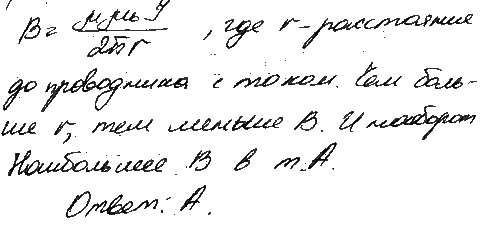 B = μμ₀I / 2πr , где r - расстояние
до проводника с током. Чем боль-
ше r, тем меньше B. И наоборот
Наибольшее B в т. А.
Ответ: А.